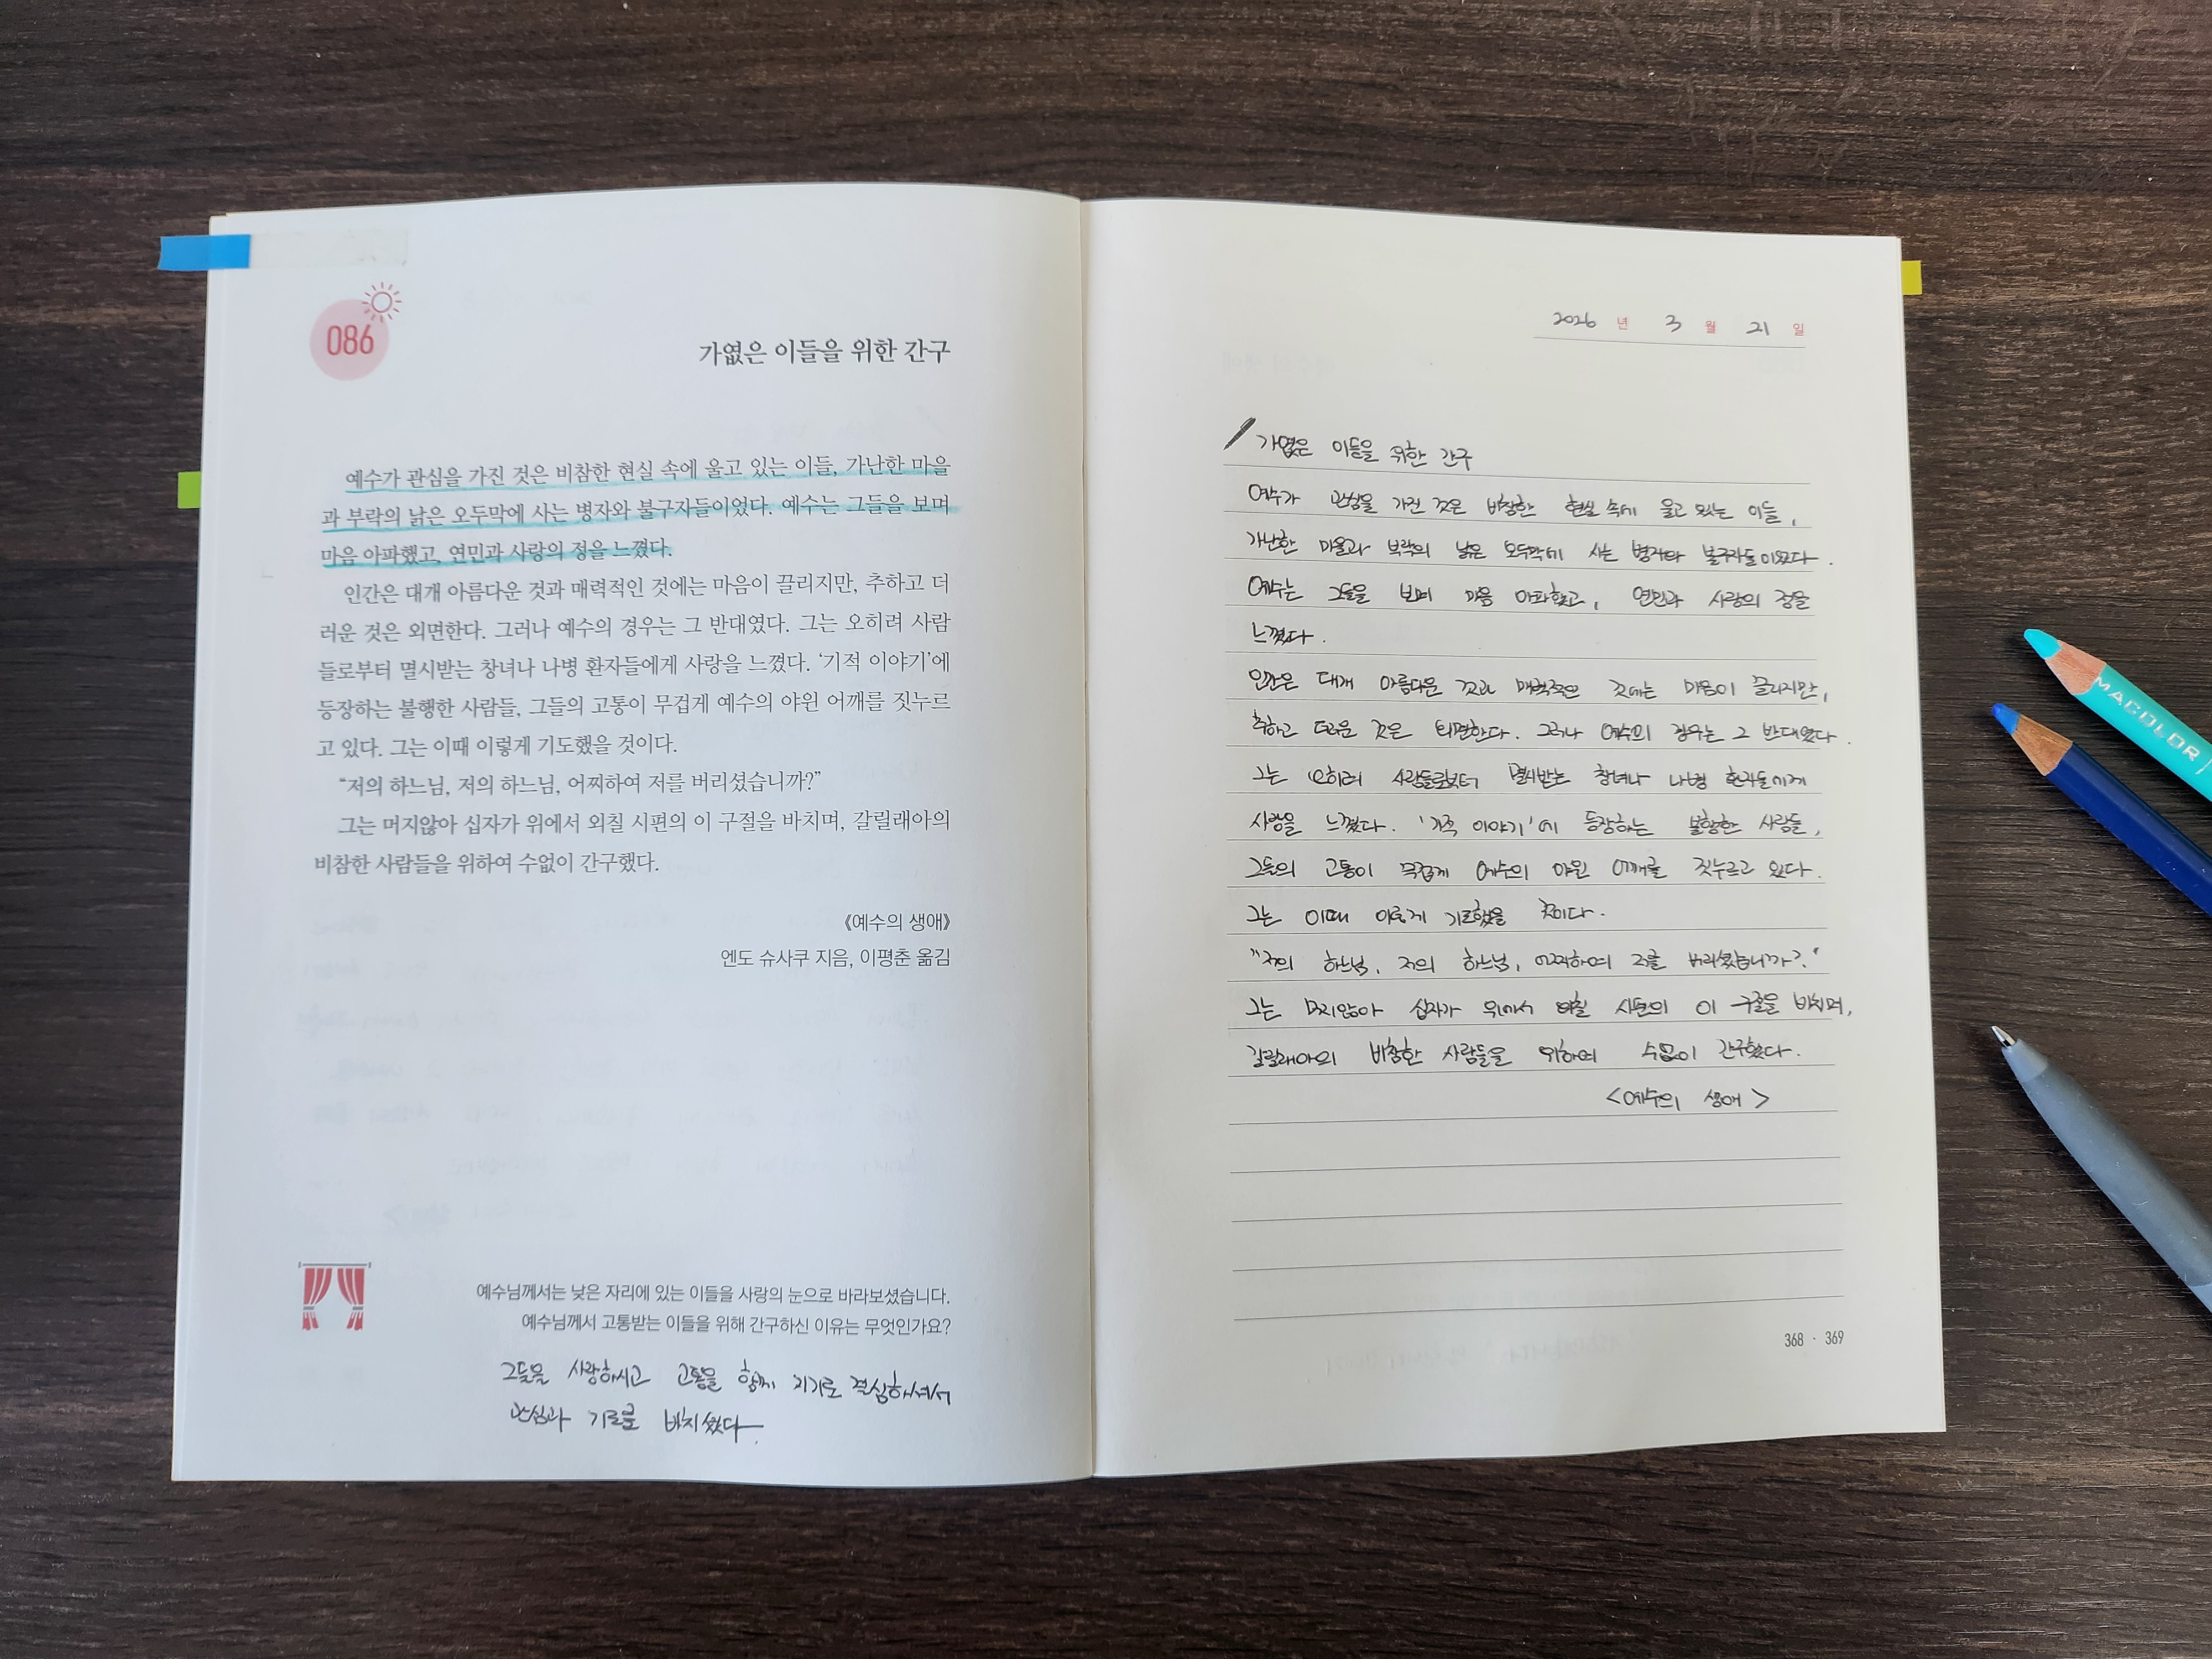 086
가엾은 이들을 위한 간구
예수가 관심을 가진 것은 비참한 현실 속에 울고 있는 이들, 가난한 마을
과 부락의 낡은 오두막에 사는 병자와 불구자들이었다. 예수는 그들을 보며
마음 아파했고, 연민과 사랑의 정을 느꼈다.
인간은 대개 아름다운 것과 매력적인 것에는 마음이 끌리지만, 추하고 더
러운 것은 외면한다. 그러나 예수의 경우는 그 반대였다. 그는 오히려 사람
들로부터 멸시받는 창녀나 나병 환자들에게 사랑을 느꼈다. ‘기적 이야기’에
등장하는 불행한 사람들, 그들의 고통이 무겁게 예수의 야윈 어깨를 짓누르
고 있다. 그는 이때 이렇게 기도했을 것이다.
“저의 하느님, 저의 하느님, 어찌하여 저를 버리셨습니까?”
그는 머지않아 십자가 위에서 외칠 시편의 이 구절을 바치며, 갈릴래아의
비참한 사람들을 위하여 수없이 간구했다.
《예수의 생애》
엔도 슈사쿠 지음, 이평춘 옮김
예수님께서는 낮은 자리에 있는 이들을 사랑의 눈으로 바라보셨습니다.
예수님께서 고통받는 이들을 위해 간구하신 이유는 무엇인가요?
그들을 사랑하시고 고통을 함께 지기로 결심하셔서
관심과 기도를 바치셨다.
2026 년 3 월 21 일
가엾은 이들을 위한 간구
예수가 관심을 가진 것은 비참한 현실 속에 울고 있는 이들,
가난한 마을과 부락의 낡은 오두막에 사는 병자와 불구자들이었다.
예수는 그들을 보며 마음 아파했고, 연민과 사랑의 정을
느꼈다.
인간은 대개 아름다운 것과 매력적인 것에는 마음이 끌리지만,
추하고 더러운 것은 외면한다. 그러나 예수의 경우는 그 반대였다.
그는 오히려 사람들로부터 멸시받는 창녀나 나병 환자들에게
사랑을 느꼈다. '기적 이야기'에 등장하는 불행한 사람들,
그들의 고통이 무겁게 예수의 야윈 어깨를 짓누르고 있다.
그는 이때 이렇게 기도했을 것이다.
"저의 하느님, 저의 하느님, 어찌하여 저를 버리셨습니까?"
그는 머지않아 십자가 위에서 외칠 시편의 이 구절을 바치며,
갈릴래아의 비참한 사람들을 위하여 수없이 간구했다.
<예수의 생애>
368 · 369
MACOLOR